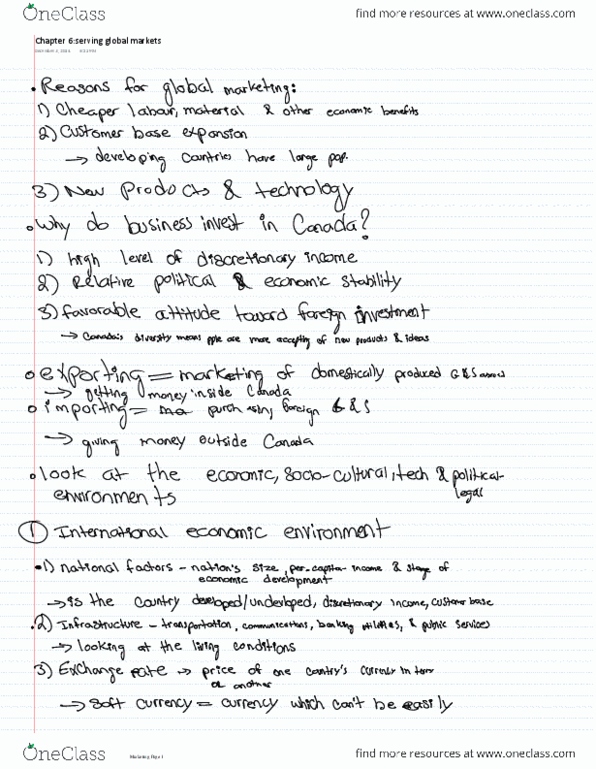 OneClass find more resources at www.oneclass.com
Chapter 6:serving global markets
• Reasons for global marketing:
1) Cheaper labour, material & other economic benefits
2) Customer base expansion
→ developing countries have large pop.
3) New Products & technology
• Why do business invest in Canada?
1) high level of discretionary income
2) Relative political & economic stability
3) favorable attitude toward foreign investment
→ Canada's diversity means ppl are more accepting of new products & ideas
• exporting = marketing of domestically produced G&S
→ getting money inside Canada
• importing = purchasing foreign G&S
→ giving money outside Canada
• look at the economic, socio-cultural, tech & political-
legal
environments
① International economic environment
•1) national factors - nation's size, per-capita- income & stage of
economic development
→ is the country developed/undevlobed, discretionary income, customer base
.2) Infrastructure - transportation, communications, banking utilities, & public services
→ looking at the living conditions
3) Exchange rate → price of one country's currency in
of another
→ Soft currency = currency which can't be easily
OneClass Marketing Page 1 find more resources at www.oneclass.com